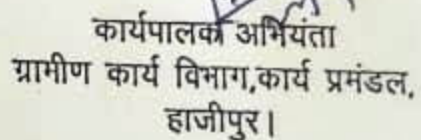 कार्यपालक अभियंता
ग्रामीण कार्य विभाग,कार्य प्रमंडल,
हाजीपुर।